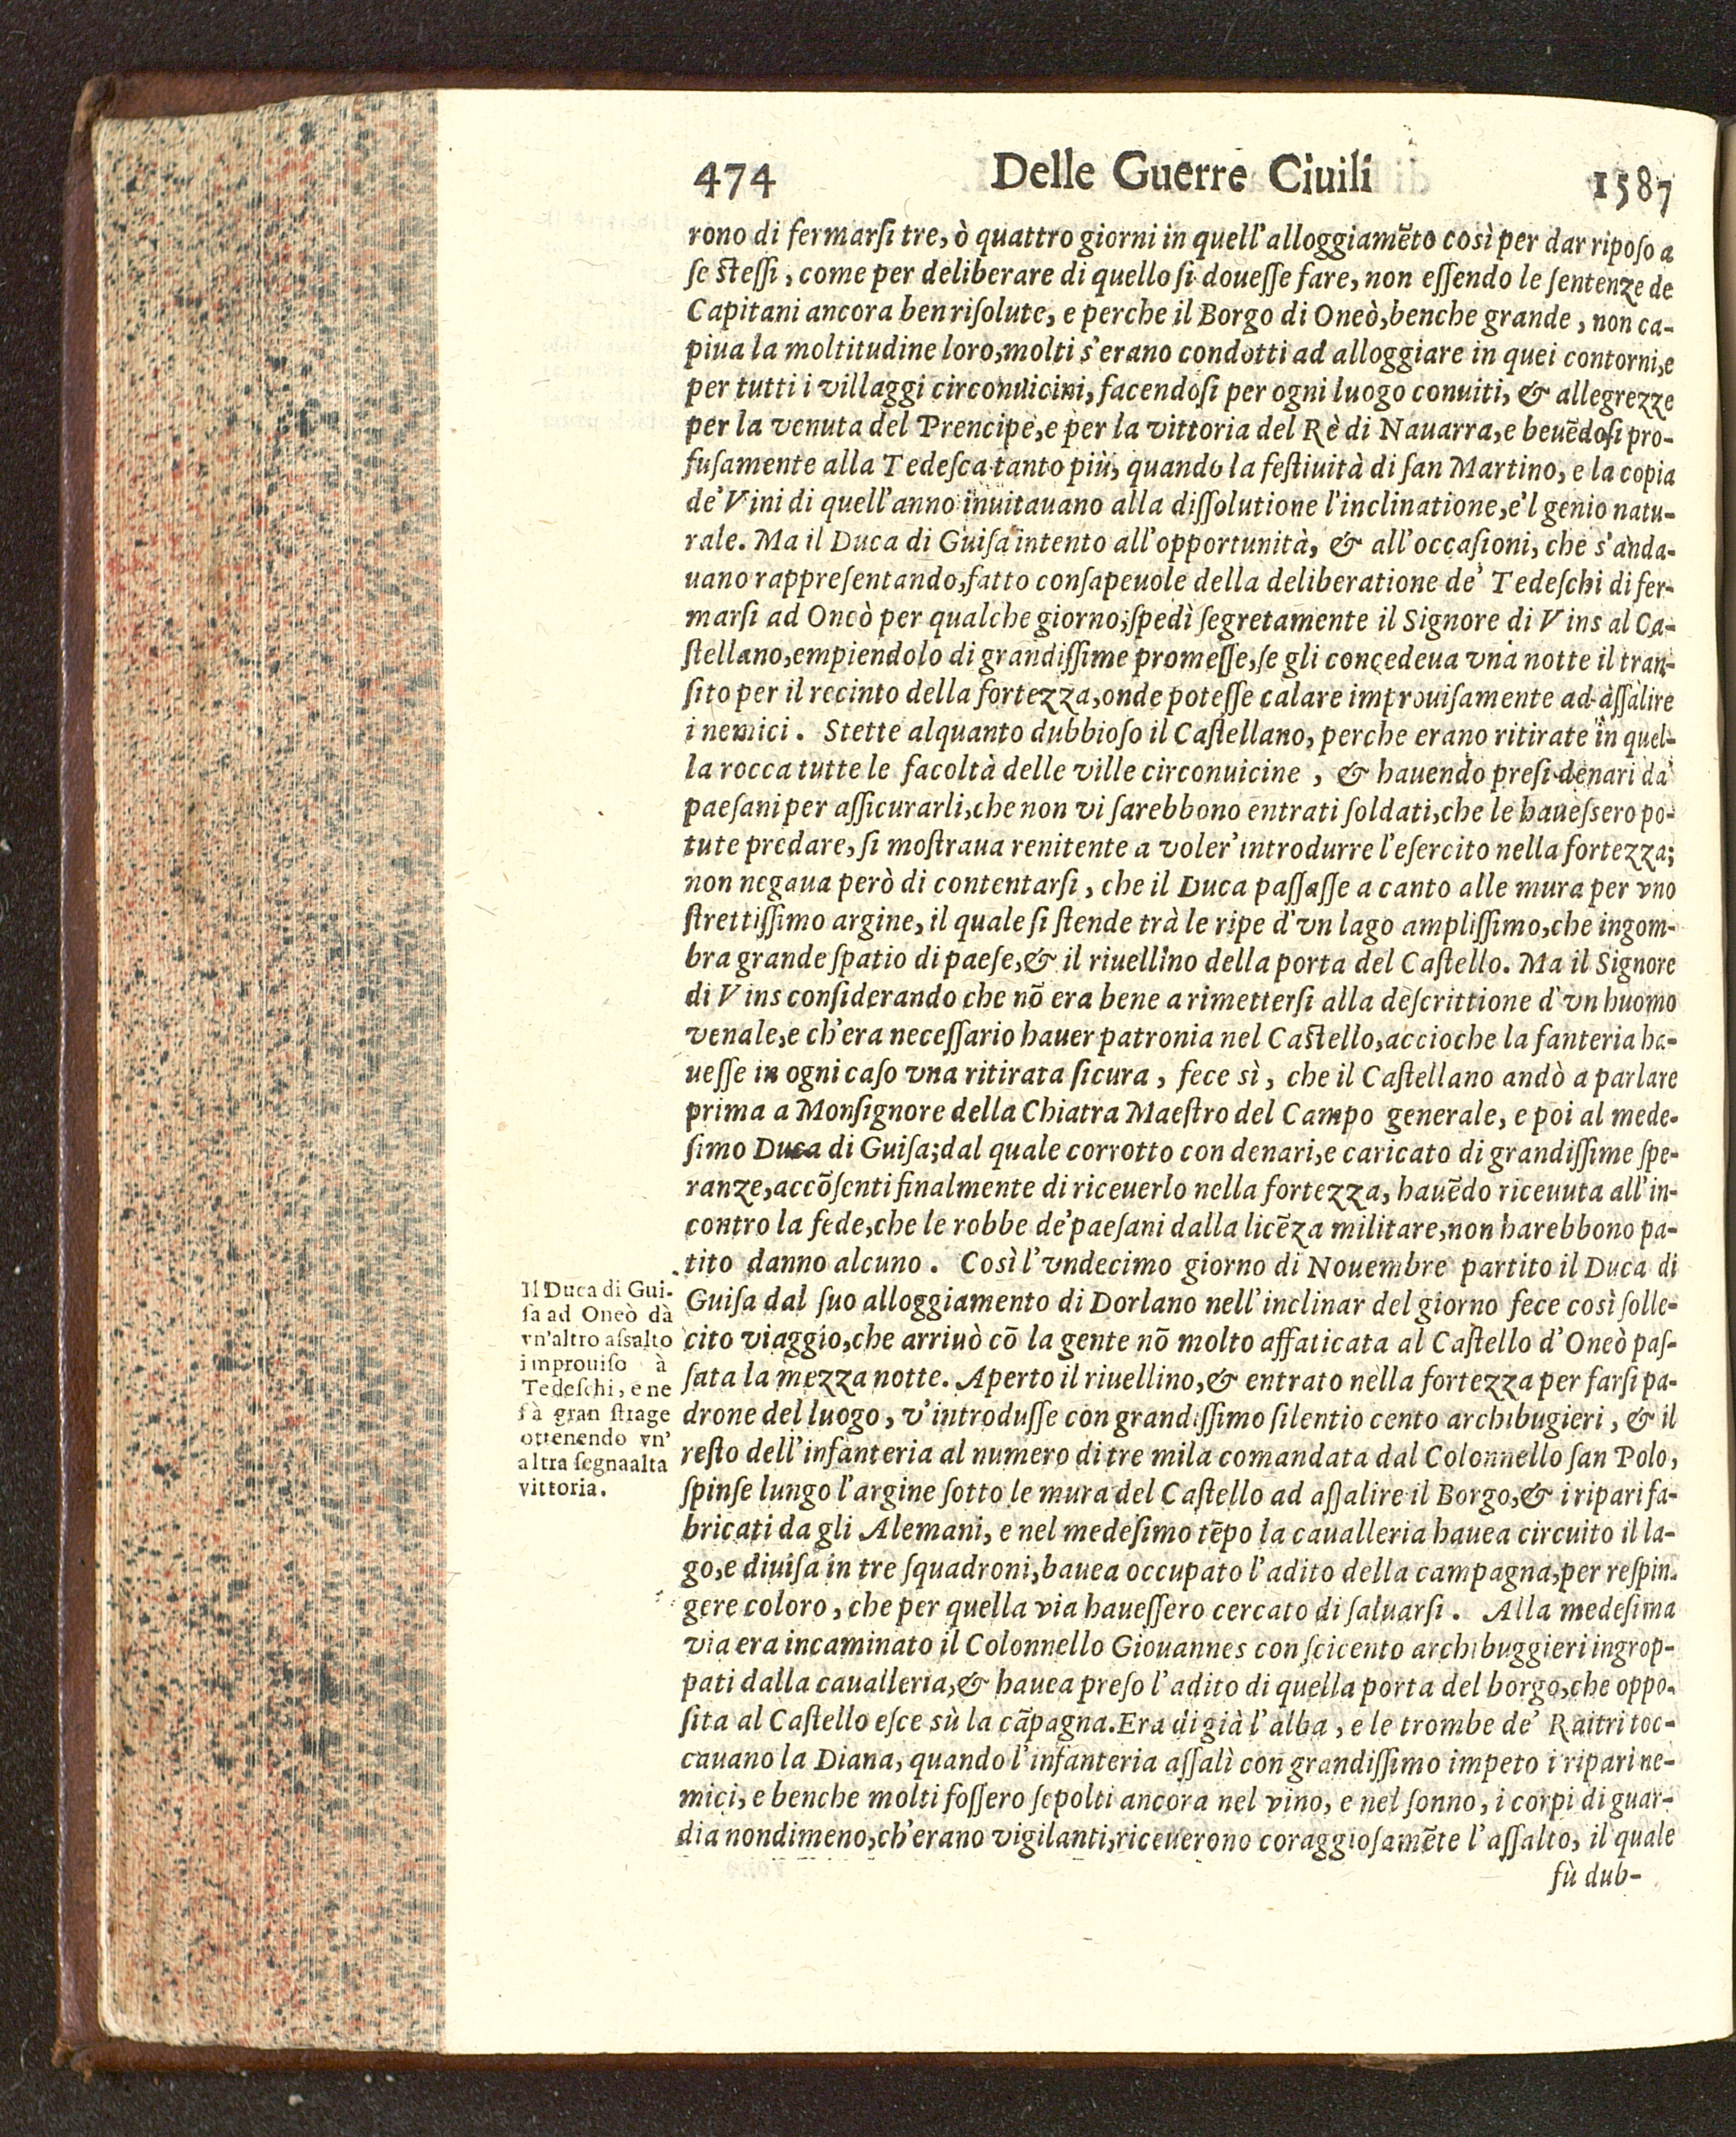 474 Delle Guerre Ciuili 1587
rono di fermarſi tre, ò quattro giorni in quell'alloggiamẽto così per dar ripoſo a
ſe ſteſſi, come per deliberare di quello ſi doueſſe fare, non eſſendo le ſentenze de
Capitani ancora ben riſolute, e perche il Borgo di Oneò, benche grande, non ca-
piua la moltitudine loro, molti s'erano condotti ad alloggiare in quei contorni, e
per tutti i villaggi circonuicini, facendoſi per ogni luogo conuiti, & allegrezze
per la venuta del Prencipe, e per la vittoria del Rè di Nauarra, e beuẽdoſi pro-
fuſamente alla Tedeſca tanto più, quando la feſtiuità di ſan Martino, e la copia
de' Vini di quell'anno inuitauano alla diſſolutione l'inclinatione, e'l genio natu-
rale. Ma il Duca di Guiſa intento all'opportunità, & all'occaſioni, che s'anda-
uano rappreſentando, fatto conſapeuole della deliberatione de' Tedeſchi di fer-
marſi ad Oneò per qualche giorno; ſpedì ſegretamente il Signore di Vins al Ca-
ſtellano, empiendolo di grandiſſime promeſſe, ſe gli concedeua vna notte il tran-
ſito per il recinto della fortezza, onde poteſſe calare improuiſamente ad aſſalire
i nemici. Stette alquanto dubbioſo il Caſtellano, perche erano ritirate in quel-
la rocca tutte le facoltà delle ville circonuicine, & hauendo preſi denari da'
paeſani per aſſicurarli, che non vi ſarebbono entrati ſoldati, che le haueſsero po-
tute predare, ſi moſtraua renitente a voler' introdurre l'eſercito nella fortezza;
non negaua però di contentarſi, che il Duca paſſaſſe a canto alle mura per vno
ſtrettiſſimo argine, il quale ſi ſtende trà le ripe d'vn lago ampliſſimo, che ingom-
bra grande ſpatio di paeſe, & il riuellino della porta del Caſtello. Ma il Signore
di Vins conſiderando che nõ era bene a rimetterſi alla deſcrittione d'vn huomo
venale, e ch'era neceſſario hauer patronia nel Caſtello, accioche la fanteria ha-
ueſſe in ogni caſo vna ritirata ſicura, fece sì, che il Caſtellano andò a parlare
prima a Monſignore della Chiatra Maeſtro del Campo generale, e poi al mede-
ſimo Duca di Guiſa; dal quale corrotto con denari, e caricato di grandiſſime ſpe-
ranze, accõſentì finalmente di riceuerlo nella fortezza, hauẽdo riceuuta all'in-
contro la fede, che le robbe de' paeſani dalla licẽza militare, non harebbono pa-
tito danno alcuno. Così l'vndecimo giorno di Nouembre partito il Duca di
Guiſa dal ſuo alloggiamento di Dorlano nell'inclinar del giorno fece così ſolle-
cito viaggio, che arriuò cõ la gente nõ molto affaticata al Caſtello d'Oneò paſ-
ſata la mezza notte. Aperto il riuellino, & entrato nella fortezza per farſi pa-
drone del luogo, v'introduſſe con grandiſſimo ſilentio cento archibugieri, & il
reſto dell'infanteria al numero di tre mila comandata dal Colonnello ſan Polo,
ſpinſe lungo l'argine ſotto le mura del Caſtello ad aſſalire il Borgo, & i ripari fa-
bricati da gli Alemani, e nel medeſimo tẽpo la caualleria hauea circuito il la-
go, e diuiſa in tre ſquadroni, hauea occupato l'adito della campagna, per reſpin-
gere coloro, che per quella via haueſſero cercato di ſaluarſi. Alla medeſima
via era incaminato il Colonnello Giouannes con ſeicento archibuggieri ingrop-
pati dalla caualleria, & hauea preſo l'adito di quella porta del borgo, che oppo-
ſita al Caſtello eſce sù la cãpagna. Era di già l'alba, e le trombe de' Raitri toc-
cauano la Diana, quando l'infanteria aſſalì con grandiſſimo impeto i ripari ne-
mici, e benche molti foſſero ſepolti ancora nel vino, e nel ſonno, i corpi di guar-
dia nondimeno, ch'erano vigilanti, riceuerono coraggioſamẽte l'aſſalto, il quale
fù dub-
Il Duca di Gui-
ſa ad Oneò dà
vn'altro aſsalto
improuiſo à
Tedeſchi, e ne
fà gran ſtrage
ottenendo vn'
altra ſegnaalta
vittoria.